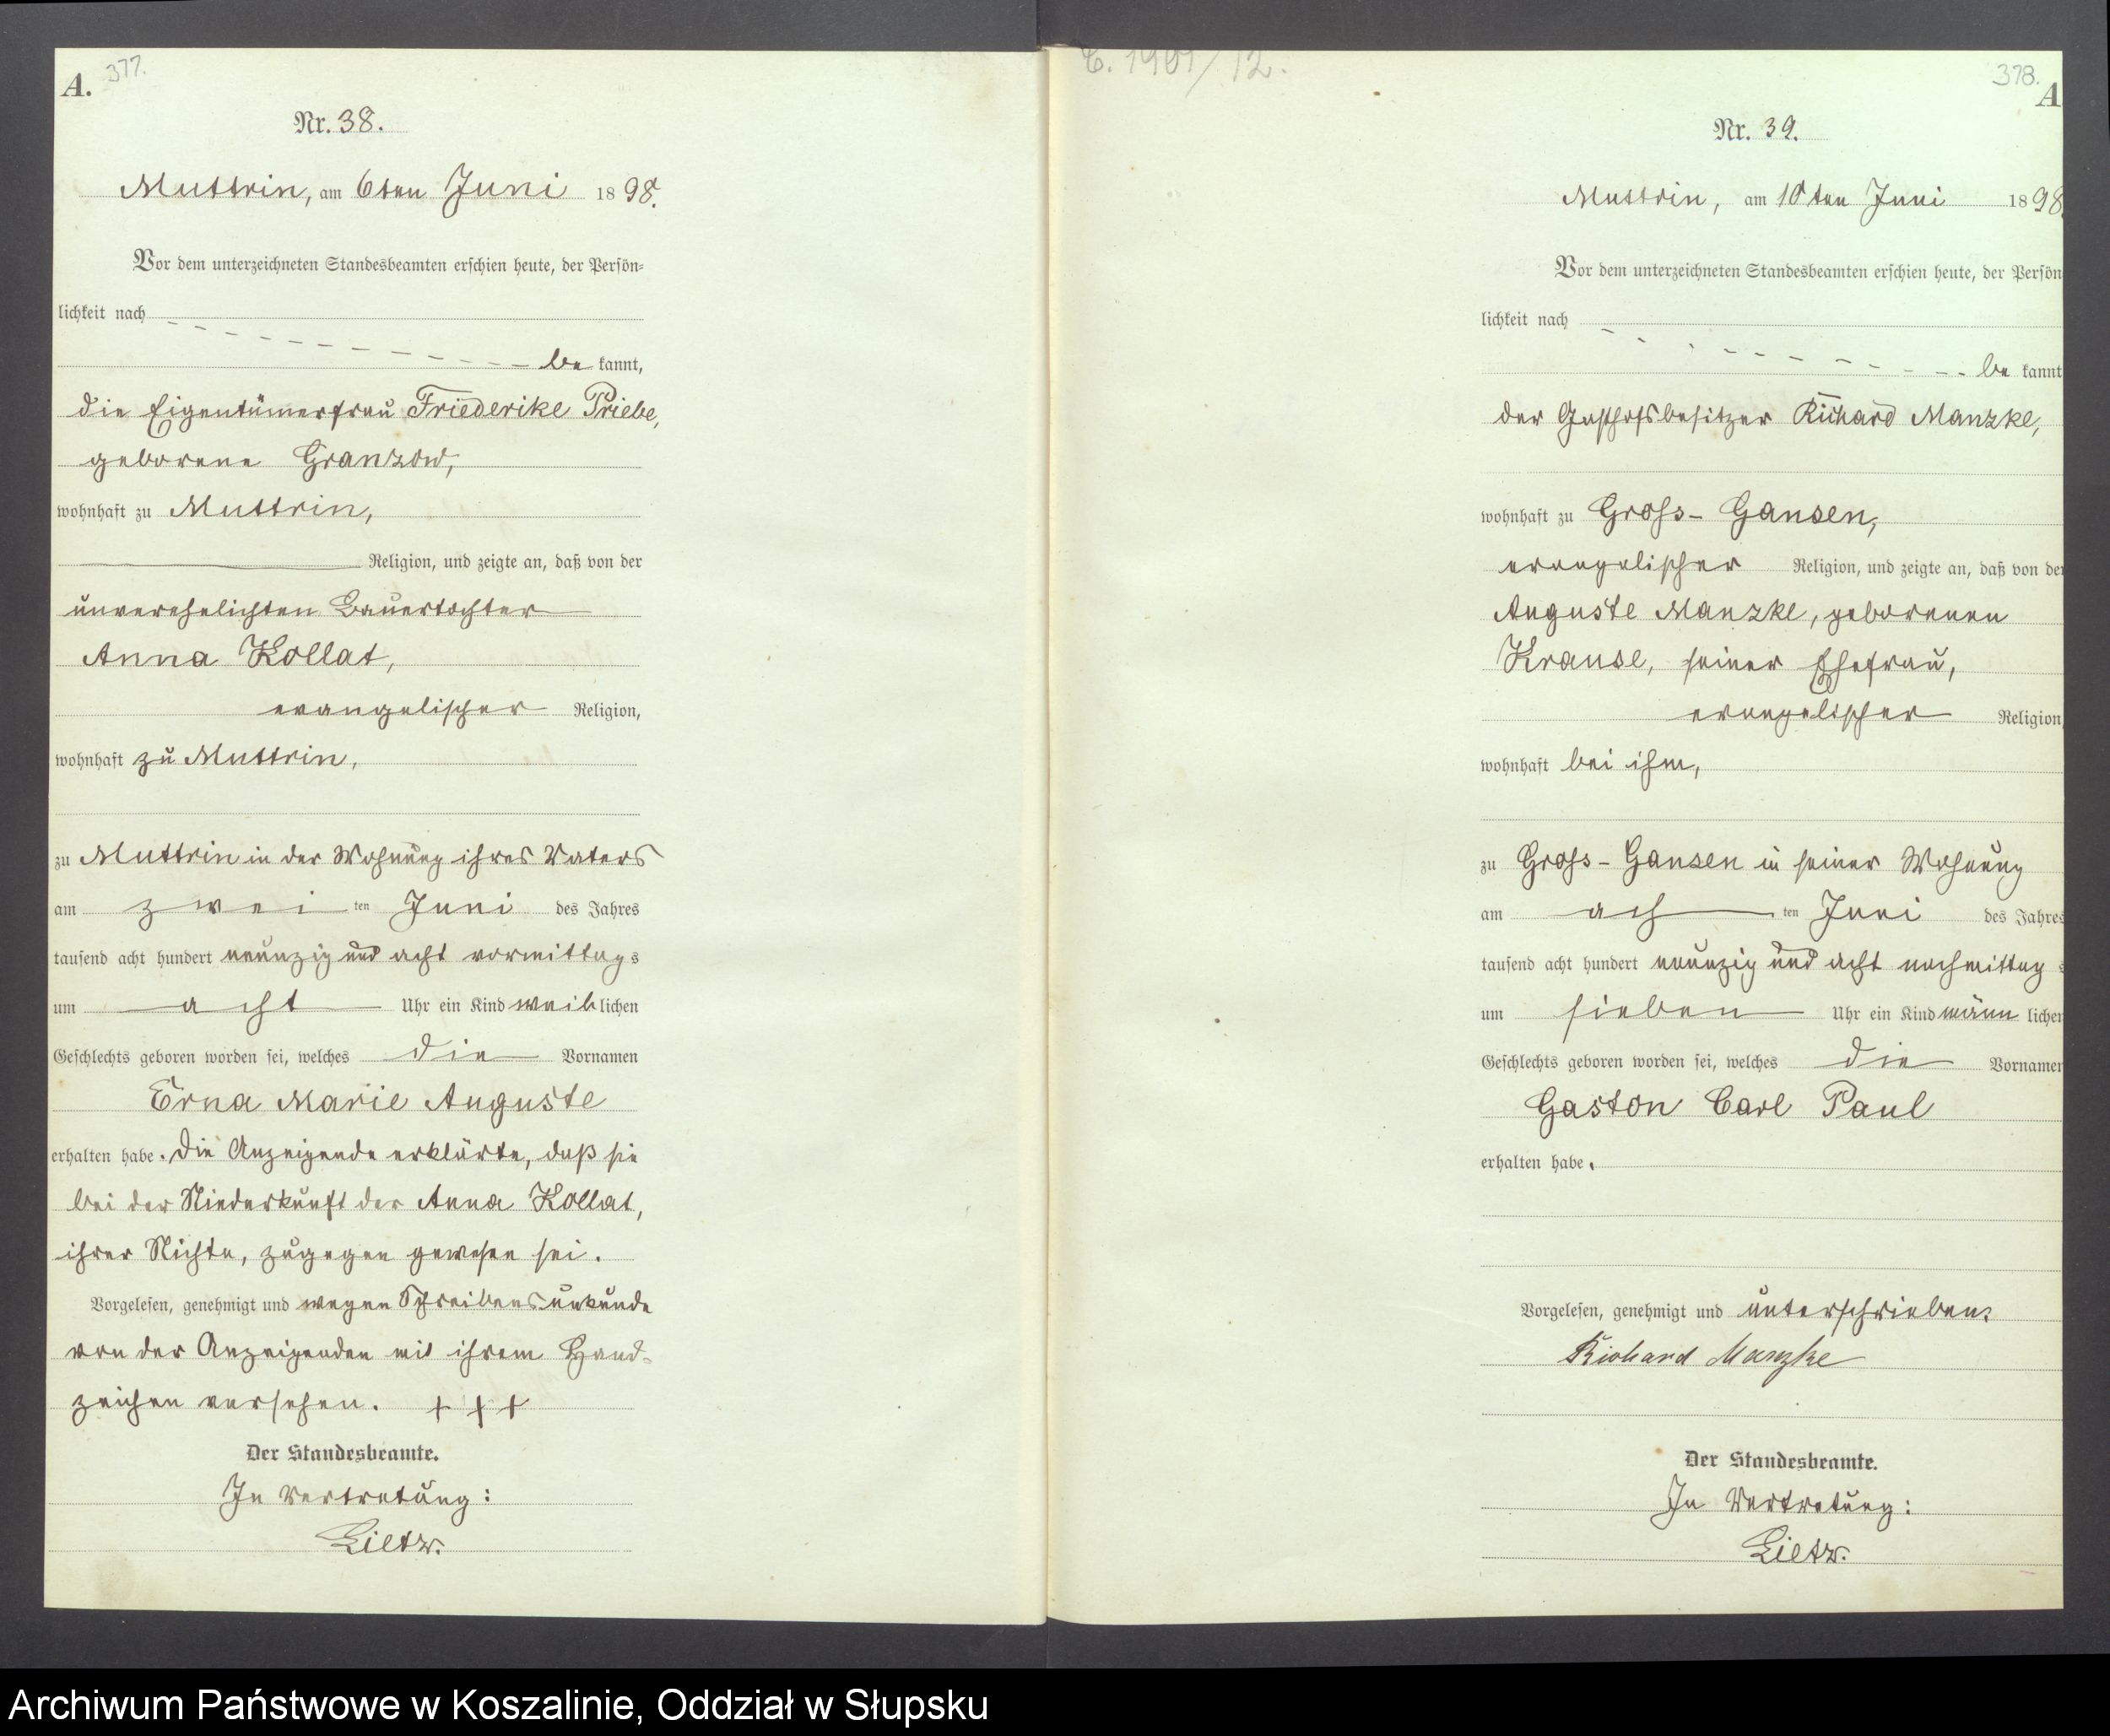 A. 377.
Nr. 38.
Muttrin, am 6ten Juni 1898.
Vor dem unterzeichneten Standesbeamten erschien heute, der Persön=
lichkeit nach
be kannt,
die Eigentümerfrau Friederike Priebe,
geborene Granzow,
wohnhaft zu Muttrin,
Religion, und zeigte an, daß von der
unverehelichten Bauertochter
Anna Kollat,
evangelischer Religion,
wohnhaft zu Muttrin,
zu Muttrin in der Wohnung ihres Vaters
am zwei ten Juni des Jahres
tausend acht hundert neunzig und acht vormittags
um acht Uhr ein Kind weiblichen
Geschlechts geboren worden sei, welches die Vornamen
Erna Marie Auguste
erhalten habe. Die Anzeigende erklärte, daß sie
bei der Niederkunft der Anna Kollat,
ihrer Nichte, zugegen gewesen sei.
Vorgelesen, genehmigt und wegen Schreibensunkunde
von der Anzeigenden mit ihrem Hand-
zeichen versehen. + + +
Der Standesbeamte.
In Vertretung:
Lietz.
C. 1901/12.
378.
A
Nr. 39.
Muttrin, am 10ten Juni 1898.
Vor dem unterzeichneten Standesbeamten erschien heute, der Persön
lichkeit nach
be kannt
der Gasthofsbesitzer Richard Manzke,
wohnhaft zu Gross-Gansen,
evangelischer Religion, und zeigte an, daß von der
Auguste Manzke, geborenen
Krause, seiner Ehefrau,
evangelischer Religion
wohnhaft bei ihm,
zu Gross-Gansen in seiner Wohnung
am ach ten Juni des Jahres
tausend acht hundert neunzig und acht nachmittag s
um sieben Uhr ein Kind männ licher
Geschlechts geboren worden sei, welches die Vornamen
Gaston Carl Paul
erhalten habe.
Vorgelesen, genehmigt und unterschrieben.
Richard Manzke
Der Standesbeamte.
In Vertretung:
Lietz.
Archiwum Państwowe w Koszalinie, Oddział w Słupsku